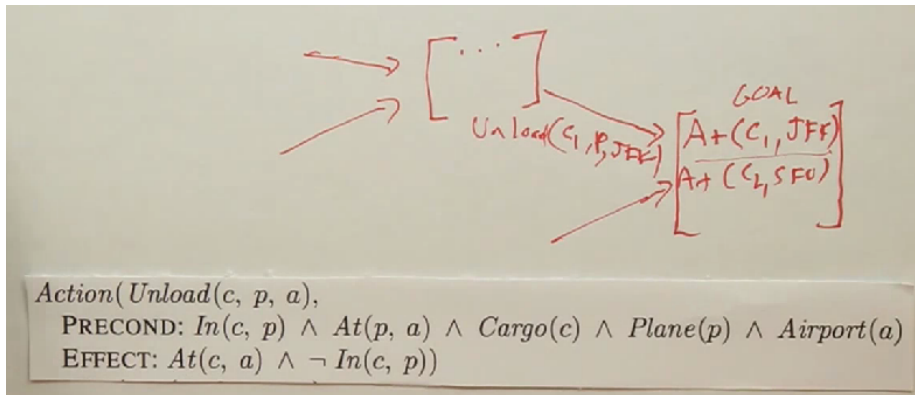 [ . . . ]
GOAL
Unload(C₁, P, JFK)
At(C₁, JFK)
At(C₂, SFO)
Action(Unload(c, p, a),
PRECOND: In(c, p) ∧ At(p, a) ∧ Cargo(c) ∧ Plane(p) ∧ Airport(a)
EFFECT: At(c, a) ∧ ¬ In(c, p))